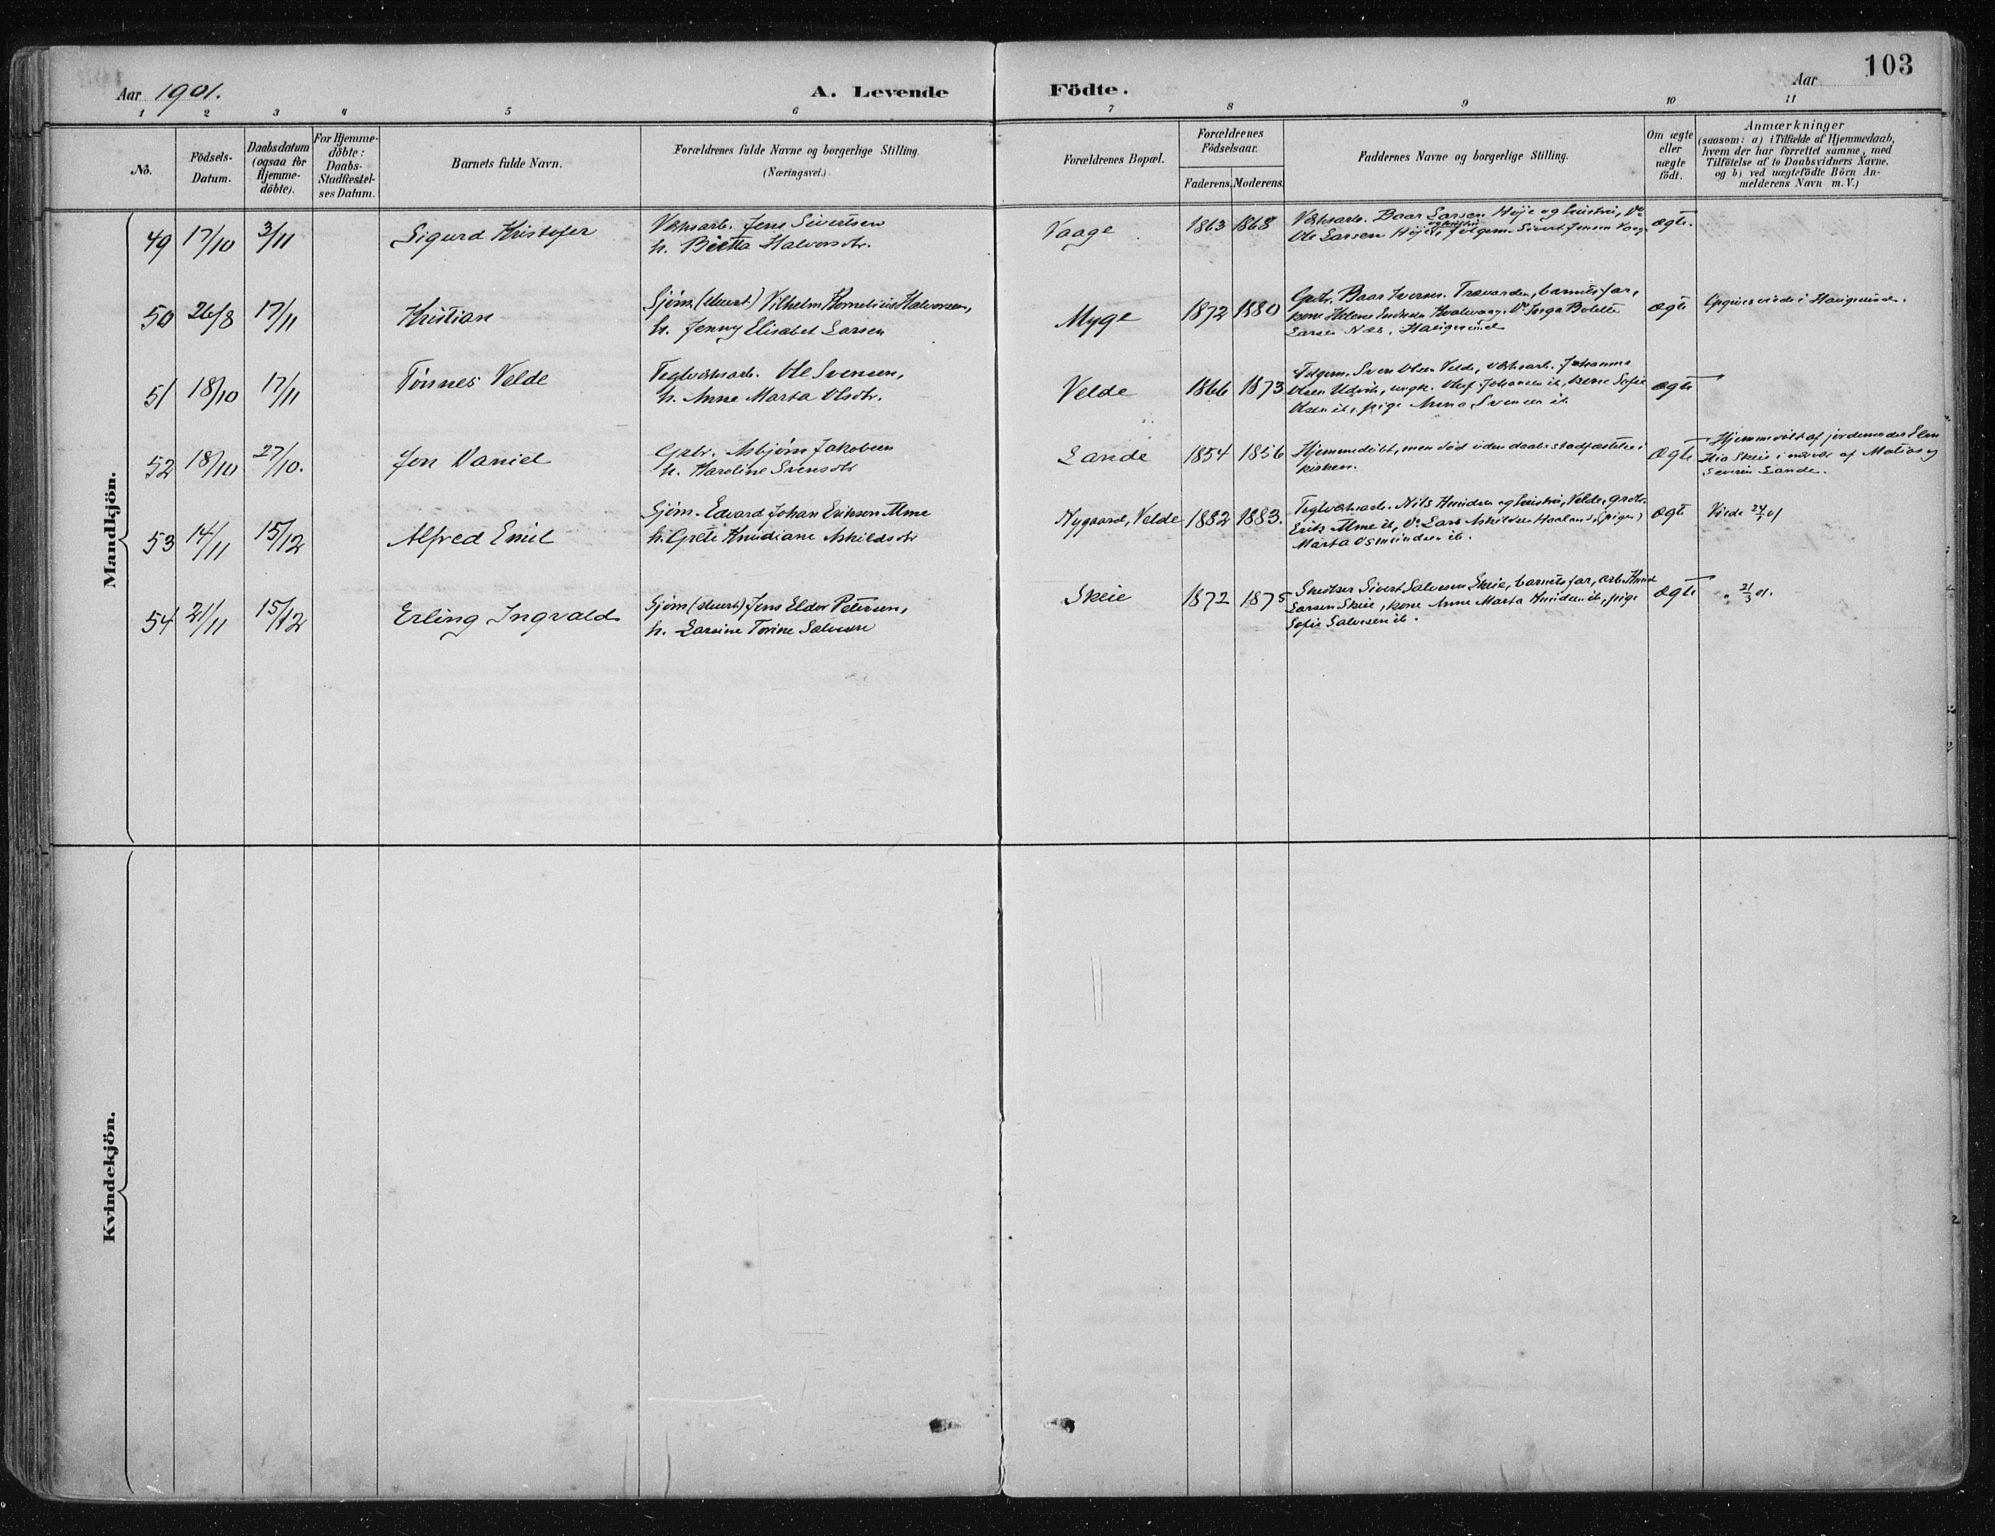 103
Aar 1901.
A. Levende
Födte.
Aar
1 2 3 4 5 6 7 8 9 10 11
No.
Födsels-
Datum.
Daabsdatum
(ogsaa for
Hjemme-
döbte).
For Hjemme-
döbte:
Daabs-
Stadfæstel-
ses Datum.
Barnets fulde Navn.
Forældrenes fulde Navne og borgerlige Stilling.
(Næringsvei.)
Forældrenes Bopæl.
Forældrenes
Födselsaar.
Faderens.
Moderens.
Faddernes Navne og borgerlige Stilling.
Om ægte
eller
uægte
födt.
Anmærkninger
(saasom: a) i Tilfælde af Hjemmedaab,
hvem der har forrettet samme, med
Tilföielse af to Daabsvidners Navne,
og b) ved uægtefödte Börn An-
melderens Navn m. V.)
Mandkjön.
49 17/10 3/11 Sigurd Kristofer
Jens Sivertsen
h. Halvorsdtr.
Vaage 1863 1868
Baar Larsen Høje og hustru, Do
Ole Larsen Høje, Sivert Jensen Vaage
ægte.
50 26/8 17/11 Kristian
Sjøm. Vilhelm Kornelius Halvorsen,
h. Jenny Elisabet Larsen
Myge 1872 1880
Gbr. Baar Iversen barnets far,
kone Helene
Larsen Næs, Haugesund
ægte
i Haugesund.
51 18/10 17/11 Tønnes Velde
Teglverksarb. Ole Svensen,
h. Anne Marta Olsdtr.
Velde 1866 1873
Sven Olsen Velde, verksarb. Johannes
Olsen ungk. Olaf Johansen ib, kone Sofie
Olsen ib, pige Anna Svensen ib.
ægte
52 18/10 27/10. Jon Daniel
Gbr. Asbjørn Jakobsen
h. Karoline Svensdtr
Lande 1854 1856
Hjemmedøbt, men død uden daabs stadfæstelse i
kirken.
ægte
Hjemmedøbt af jordemoder
Skeie i nærvær af Matias og
Severin Lande.
53 14/11 15/12 Alfred Emil
Sjøm. Edvard Johan Eriksen Alme
h. Grete Knudiane Askildsdtr
Nygaard, Velde 1882 1883.
Teglverksarb. Nils Knudsen og hustru, Velde, gbr.
Erik Alme ib, Do Lars Askildsen Haaland, pige
Marta Osmundsen ib.
ægte
Viede 24/1 01
54 21/11 15/12 Erling Ingvald
Sjøm. Jens Eldor Petersen,
h. Larsine Torine Salvesen
Skeie 1872 1875
Sivert Salvesen Skeie, barnets far, arb. Knud
Larsen Skeie, kone Anne Marta Knudsen ib, pige
Sofie Salvesen ib.
ægte
„ 21/3 01.
Kvindekjön.